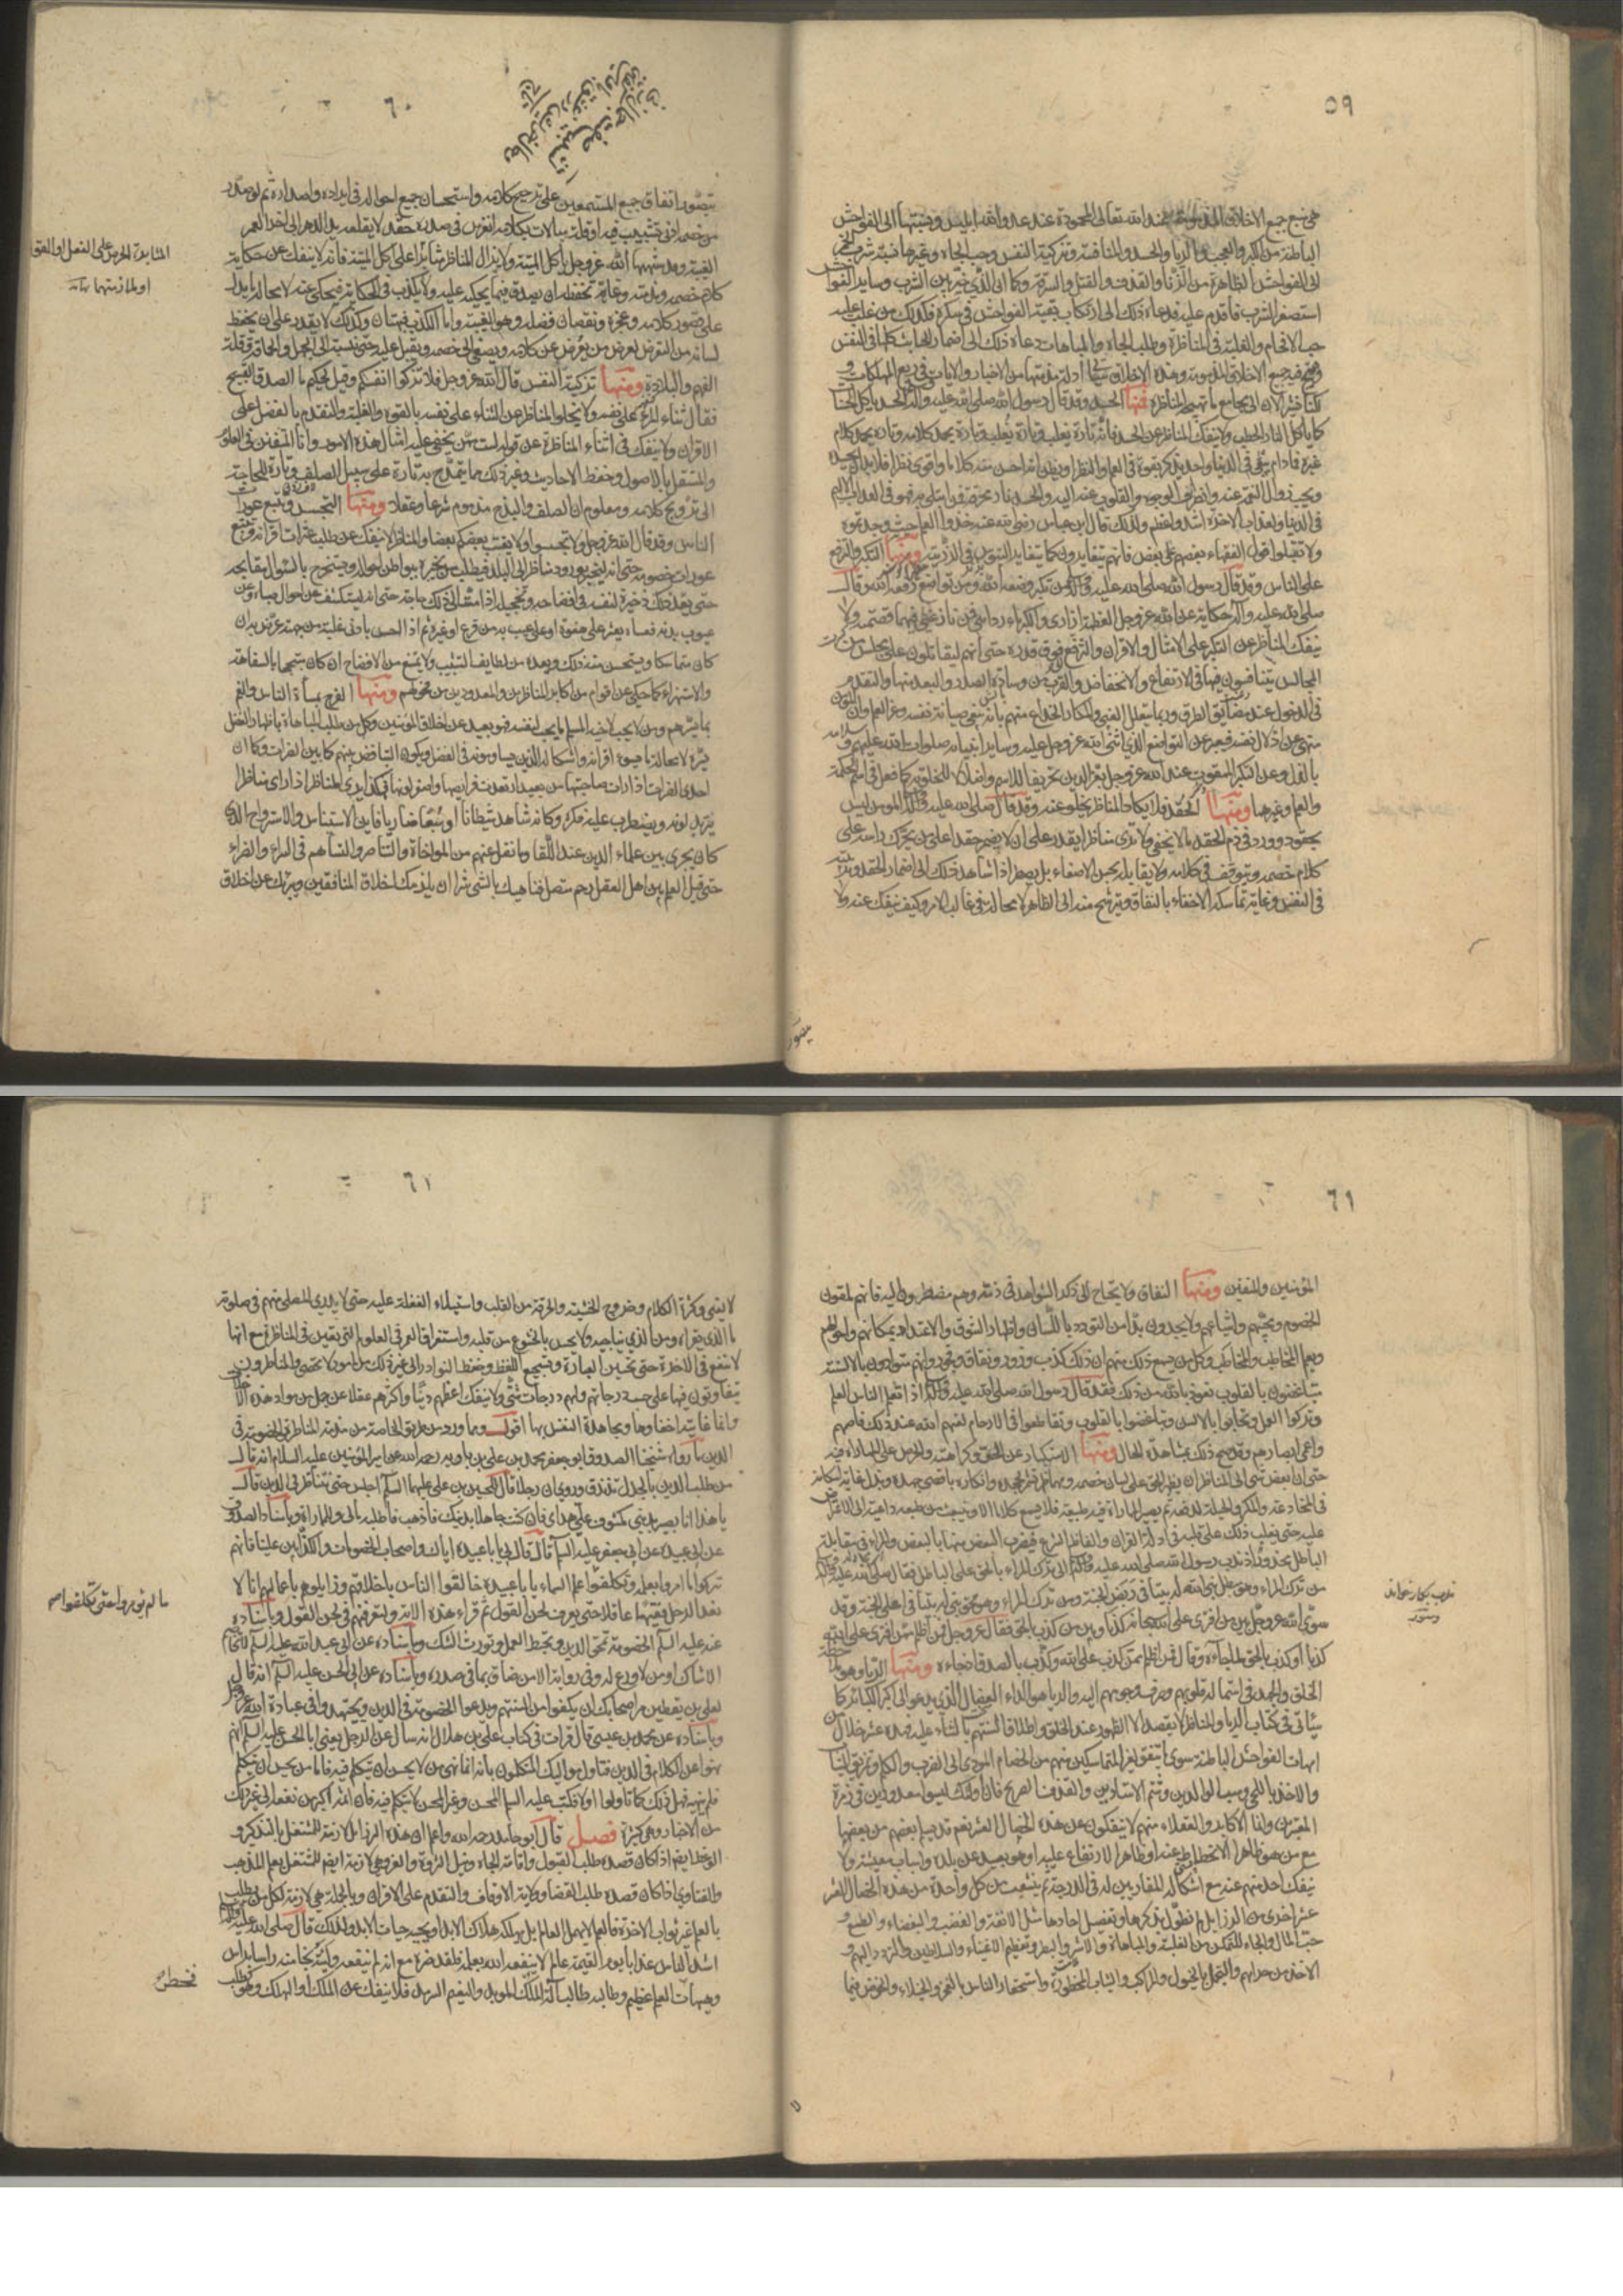 ٥٩
هي منبع جميع الاخلاق المذمومة عند الله تعالى المحمودة عند عدو الله ابليس ونسبتها الى الفواحش
الباطنة من الكبر والعجب والريا والحسد والمنافسة وتزكية النفس وحب الجاه وغيرها نسبة شرب الخمر
الى الفواحش الظاهرة من الزنا والقذف والقتل والسرقة وكما ان الذي خير بين الشرب وساير الفواحش
استصغر الشرب فاقدم عليه فدعاه ذلك الى ارتكاب بقية الفواحش في سكره فكذلك من غلب عليه
حب الافحام والغلبة في المناظرة وطلب الجاه والمباهات دعاه ذلك الى اضمار الخبايث كلها في النفس
وهيج فيه جميع الاخلاق المذمومة وهذه الاخلاق ستاتي ادلة مذمتها من الاخبار والايات في ربع المهلكات و
لكنا نشير الان الى مجامع ما تهيجه المناظرة فمنها الحسد وقد قال رسول الله صلى الله عليه واله الحسد ياكل الحسنات
كما ياكل النار الحطب ولا ينفك المناظر عن الحسد فانه تارة يغلب وتارة يُغلب وتارة يحمد كلامه وتارة يحمد كلام
غيره فما دام يبقى في الدنيا واحد يذكر بقوة في العلم والنظر او يظن انه احسن منه كلاما واقوى نظرا فلا بد ان يحسده
ويحب زوال النعم عنه وانصراف الوجوه والقلوب عنه اليه والحسد نار محرقة فمن ابتلي به فهو في العذاب الاليم
في الدنيا ولعذاب الاخرة اشد واعظم ولذلك قال ابن عباس رضي الله عنه خذوا العلم حيث وجدتموه
ولا تقبلوا قول الفقهاء بعضهم على بعض فانهم يتغايرون كما يتغاير التيوس في الزريبة ومنها التكبر والترفع
على الناس وقد قال رسول الله صلى الله عليه واله من تكبر وضعه الله ومن تواضع رفعه الله وقال
صلى الله عليه واله حكاية عن الله عز وجل العظمة ازاري والكبرياء رداءي فمن نازعني فيهما قصمته ولا
ينفك المناظر عن التكبر على الامثال والاقران والترفع فوق قدره حتى انهم ليتقاتلون على مجلس من
المجالس يتنافسون فيها في الارتفاع والانخفاض والقرب من وسادة الصدر والبعد منها والتقدم
في الدخول عند مضايق الطرق وربما يتعلل الغبي والمكار الخداع منهم بانه يبغي صيانة نفسه وعز العلم وان المؤمن
منهي عن اذلال نفسه فيعبر عن التواضع الذي اثنى الله عز وجل عليه وساير انبيائه صلوات الله عليهم و
بالذل وعن التكبر الممقوت عند الله عز وجل بعز الدين تحريفا للاسم واضلالا للخلق به كما فعل في اسم الحكمة
والعلم وغيرهما ومنها الحقد فلا يكاد المناظر يخلو عنه وقد قال صلى الله عليه واله المؤمن ليس
بحقود وورد في ذم الحقد ما لا يخفى ولا ترى مناظرا يقدر على ان لا يضمر حقدا على من يحرك راسه على
كلام خصمه ويتوقف في كلامه ولا يقابله بحسن الاصغاء بل يضطر اذا شاهد ذلك الى اضمار الحقد وتربيته
في النفس وغاية تماسكه الاخفاء بالنفاق ويترشح منه الى الظاهر لا محالة في غالب الامر وكيف ينفك عنه ولا
يتصور
٦٠
يتصور اتفاق جميع المستمعين على ترجيح كلامه واستحسان جميع احواله في ايراده واصداره ثم لو صدر
من خصمه ادنى تشبيب فيه او قلة مبالات بكلامه انغرس في صدره حقد لا يقلعه يد الدهر الى اخر العمر
الغيبة وقد شبهها الله عز وجل باكل الميتة ولا يزال المناظر مثابرا على اكل الميتة فانه لا ينفك عن حكاية
كلام خصمه ومذمته وغاية تحفظه ان يصدق فيما يحكيه عليه ولا يكذب في الحكاية فيحكي عنه لا محالة ما يدل
على قصور كلامه وعجزه ونقصان فضله وهو الغيبة واما الكذب فبهتان وكذلك لا يقدر على ان يحفظ
لسانه من التعرض لعرض من يعرض عن كلامه ويصغي الى خصمه ويقبل عليه حتى ينسبه الى الجهل والحماقة وقلة
الفهم والبلادة ومنها تزكية النفس قال الله عز وجل فلا تزكوا انفسكم وقيل لحكيم ما الصدق القبيح
فقال ثناء المرء على نفسه ولا يخلو المناظر عن الثناء على نفسه بالقوة والغلبة والتقدم بالفضل على
الاقران ولا ينفك في اثناء المناظرة عن قوله لست ممن يخفى عليه امثال هذه الامور وانا المتفنن في العلوم
والمستقل بالاصول وحفظ الاحاديث وغير ذلك مما يتمدح به تارة على سبيل الصلف وتارة للحاجة
الى ترويج كلامه ومعلوم ان الصلف والبذخ مذموم شرعا وعقلا ومنها التجسس وتتبع عورات
الناس وقد قال الله عز وجل ولا تجسسوا ولا يغتب بعضكم بعضا والمناظر لا ينفك عن طلب عثرات اقرانه وتتبع
عورات خصومه حتى انه ليخبر بورود مناظر الى البلد فيطلب من يخبر بواطن احواله ويستخرج بالسؤال مقابحه
حتى يعد ذلك ذخيرة لنفسه في افضاحه وتخجيله اذا مست الى ذلك حاجة حتى انه ليستكشف عن احوال صباه وعن
عيوب بدنه فعساه يعثر على هفوة او على عيب به من قرع او غيره ثم اذا احس بادنى غلبة من جهته عرّض به ان
كان متماسكا ويستحسن منه ذلك ويعد من لطايف التشبيب ولا يمتنع من الافصاح ان كان متبجحا بالسفاهة
والاستهزاء كما حكي عن اقوام من اكابر المناظرين والمعدودين من فحولهم ومنها الفرح بمساة الناس والغم
بمسارهم ومن لا يحب لاخيه المسلم ما يحب لنفسه فهو بعيد عن اخلاق المؤمنين وكل من طلب المباهاة باظهار الفضل
يسره لا محالة ما يسوء اقرانه واشكاله الذين يسامونه في الفضل ويكون التباغض بينهم كما بين الضرات وكما ان
احدى الضرات اذا رات صاحبتها من بعيد ارتعدت فرايصها واصفر لونها فهكذا يرى المناظر اذا راى مناظرا
يتربد لونه ويضطرب عليه فكره وكانه شاهد شيطانا او سبعا ضاريا فاين الاستيناس والاسترواح الذي
كان يجري بين علماء الدين عند اللقا وما نقل عنهم من المواخاة والتناصر والتساهم في السراء والضراء
حتى قيل العلم بين اهل العقل رحم متصل فناهيك بالشيء شرا ان يلزمك اخلاق المنافقين ويبريك عن اخلاق
المثابرة الحرص على الفعل او القول
او ملازمتهما
٦١
المؤمنين والمتقين ومنها النفاق ولا يحتاج الى ذكر الشواهد في ذمه وهم مضطرون اليه فانهم يلقون
الخصوم ومحبيهم واشياعهم ولا يجدون بدا من التودد باللسان واظهار الشوق والاعتداد بمكانهم واحوالهم
ويعلم المخاطب والمخاطب وكل من سمع ذلك منهم ان ذلك كذب وزور ونفاق وفجور وانهم متوادون بالالسنة
متباغضون بالقلوب نعوذ بالله من ذلك فقد قال رسول الله صلى الله عليه واله اذا تعلم الناس العلم
وتركوا العمل وتحابوا بالالسن وتباغضوا بالقلوب وتقاطعوا في الارحام لعنهم الله عند ذلك فاصمهم
واعمى ابصارهم وقد صح ذلك بمشاهدة الحال ومنها الاستكبار عن الحق وكراهته والحرص على المماراة فيه
حتى ان ابغض شيء الى المناظر ان يظهر الحق على لسان خصمه ومهما ظهر تشمر لجحده وانكاره باقصى جهده وبذل غاية امكانه
في المخادعة والمكر والحيلة لدفعه ثم يصير المماراة فيه طبيعة فلا يسمع كلاما الا وينبعث من طبعه داعية الى الاعتراض
عليه حتى يغلب ذلك على قلبه في ادلة القران والفاظ الشرع فيضرب البعض منها بالبعض والمراء في مقابلة
الباطل محذور اذ ندب رسول الله صلى الله عليه واله الى ترك المراء بالحق على الباطل فقال صلى الله عليه واله
من ترك المراء وهو مبطل بنى الله له بيتا في ربض الجنة ومن ترك المراء وهو محق بنى له بيتا في اعلى الجنة وقد
سوى الله عز وجل بين من افترى على الله سبحانه كذبا وبين من كذب بالحق فقال عز وجل فمن اظلم ممن افترى على الله
كذبا او كذب بالحق لما جاءه وقال فمن اظلم ممن كذب على الله وكذب بالصدق اذ جاءه ومنها الريا وملاحظة
الخلق والجهد في استمالة قلوبهم وصرف وجوههم اليه والريا هو الداء العضال الذي يدعو الى اكبر الكباير كما
سياتي في كتاب الريا والمناظر لا يقصد الا الظهور عند الخلق واطلاق السنتهم بالثناء عليه فهذه عشر خلال من
امهات الفواحش الباطنة سوى ما يتفق لغير المتماسكين منهم من الخصام المودي الى الضرب واللكم وتمزيق الثياب
والاخذ باللحى وسب الوالدين وشتم الاستادين والقذف الصريح فان اولئك ليسوا معدودين في زمرة
المعتبرين وانما الاكابر والعقلاء منهم لا ينفكون عن هذه الخصال العشر نعم قد يسلم بعضهم من بعضها
مع من هو ظاهر الانحطاط عنه او ظاهر الارتفاع عليه او هو بعيد عن بلده واسباب معيشته ولا
ينفك احد منهم عنه مع اشكاله المقاربين له في الدرجة ثم يتشعب من كل واحدة من هذه الخصال العشر
عشر اخرى من الرذايل لم نطول بذكرها وتفصيل احادها مثل الانفة والغضب والبغضاء والطمع و
حب المال والجاه للتمكن من الغلبة والمباهاة والاشر والبطر وتعظيم الاغنياء والسلاطين والتردد اليهم و
الاخذ من حرامهم والتجمل بالخيول والمراكب والثياب المحظورة واستحقار الناس بالفخر والخيلاء والخوض فيما
٦١
لا يعني وكثرة الكلام وخروج الخشية والرحمة من القلب واستيلاء الغفلة عليه حتى لا يدري المصلي منهم في صلوته
ما الذي يقراه ومن الذي يناجيه ولا يحس بالخشوع من قلبه واستغراق العمر في العلوم التي تعين في المناظرة مع انها
لا تنفع في الاخرة حتى تحسين العبارة وتسجيع اللفظ وحفظ النوادر الى غير ذلك من امور لا تحصى والمناظرون
يتفاوتون فيها على حسب درجاتهم ولهم درجات شتى ولا ينفك اعظمهم دينا واكثرهم عقلا عن جمل من مواد هذه الاخلاق
وانما غايته اخفاؤها ومجاهدة النفس بها اقول ومما ورد من طريق الخاصة من مذمة المناظرة والخصومة في
الدين ما رواه شيخنا الصدوق ابو جعفر محمد بن علي بن بابويه رحمه الله عن امير المؤمنين عليه السلام انه قال
من طلب الدين بالجدل تزندق وروي ان رجلا قال للحسين بن علي عليهما السلم اجلس حتى نتناظر في الدين فقال
يا هذا انا بصير بديني مكشوف علي هداي فان كنت جاهلا بدينك فاذهب فاطلبه مالي وللمماراة وباسناد الصدوق
عن ابي عبيدة عن ابي جعفر عليه السلم قال قال لي يا با عبيدة اياك واصحاب الخصومات والكذابين علينا فانهم
تركوا ما امروا بعلمه وتكلفوا علم السماء يا با عبيدة خالقوا الناس باخلاقهم وزايلوهم باعمالهم انا لا
نعد الرجل فقيها عاقلا حتى يعرف لحن القول ثم قراء هذه الاية ولتعرفنهم في لحن القول وباسناده
عنه عليه السلم الخصومة تمحق الدين وتحبط العمل وتورث الشك وباسناده عن ابي عبد الله عليه السلم لا يخاصم
الا شاك او من لا ورع له وفي رواية الا من ضاق بما في صدره وباسناده عن ابي الحسن عليه السلم انه قال
لعلي بن يقطين مر اصحابك ان يكفوا من السنتهم ويدعوا الخصومة في الدين ويجتهدوا في عبادة الله عز وجل
وباسناده عن محمد بن عيسى قال قرات في كتاب علي بن هلال انه سال عن الرجل يعني ابا الحسن عليه السلم انهم
نهوا عن الكلام في الدين فتاول مواليك المتكلمون بانه انما نهي من لا يحسن ان يتكلم فيه فاما من يحسن ان يتكلم
فلم ينه فهل ذلك كما تاولوا او لا فكتب عليه السلم المحسن وغير المحسن لا يتكلم فيه فان اثمه اكبر من نفعه الى غير ذلك
من الاخبار وهي كثيرة فصل قال ابو حامد رحمه الله واعلم ان هذه الرذايل لازمة للمشتغل بالتذكير و
الوعظ ايضا اذا كان قصده طلب القبول واقامة الجاه ونيل الثروة والعز وهي لازمة ايضا للمشتغل بعلم المذهب
والفتاوي اذا كان قصده طلب القضا وولاية الاوقاف والتقدم على الاقران وبالجملة هي لازمة لكل من يطلب
بالعلم غير ثواب الاخرة فالعلم لا يهمل العالم بل يهلكه هلاك الابد او يحييه حيات الابد ولذلك قال صلى الله عليه واله
اشد الناس عذابا يوم القيمة عالم لا ينفعه الله بعلمه فلقد ضره مع انه لم ينفعه وليته نجا منه راسا براس
وهيهات فخطر العلم عظيم وطالبه طالب الملك المؤبد والنعيم السرمد فلا ينفك عن الملك او الهلك وهو كطالب
ما لم يؤمروا حتى تكلفوا
فخطر